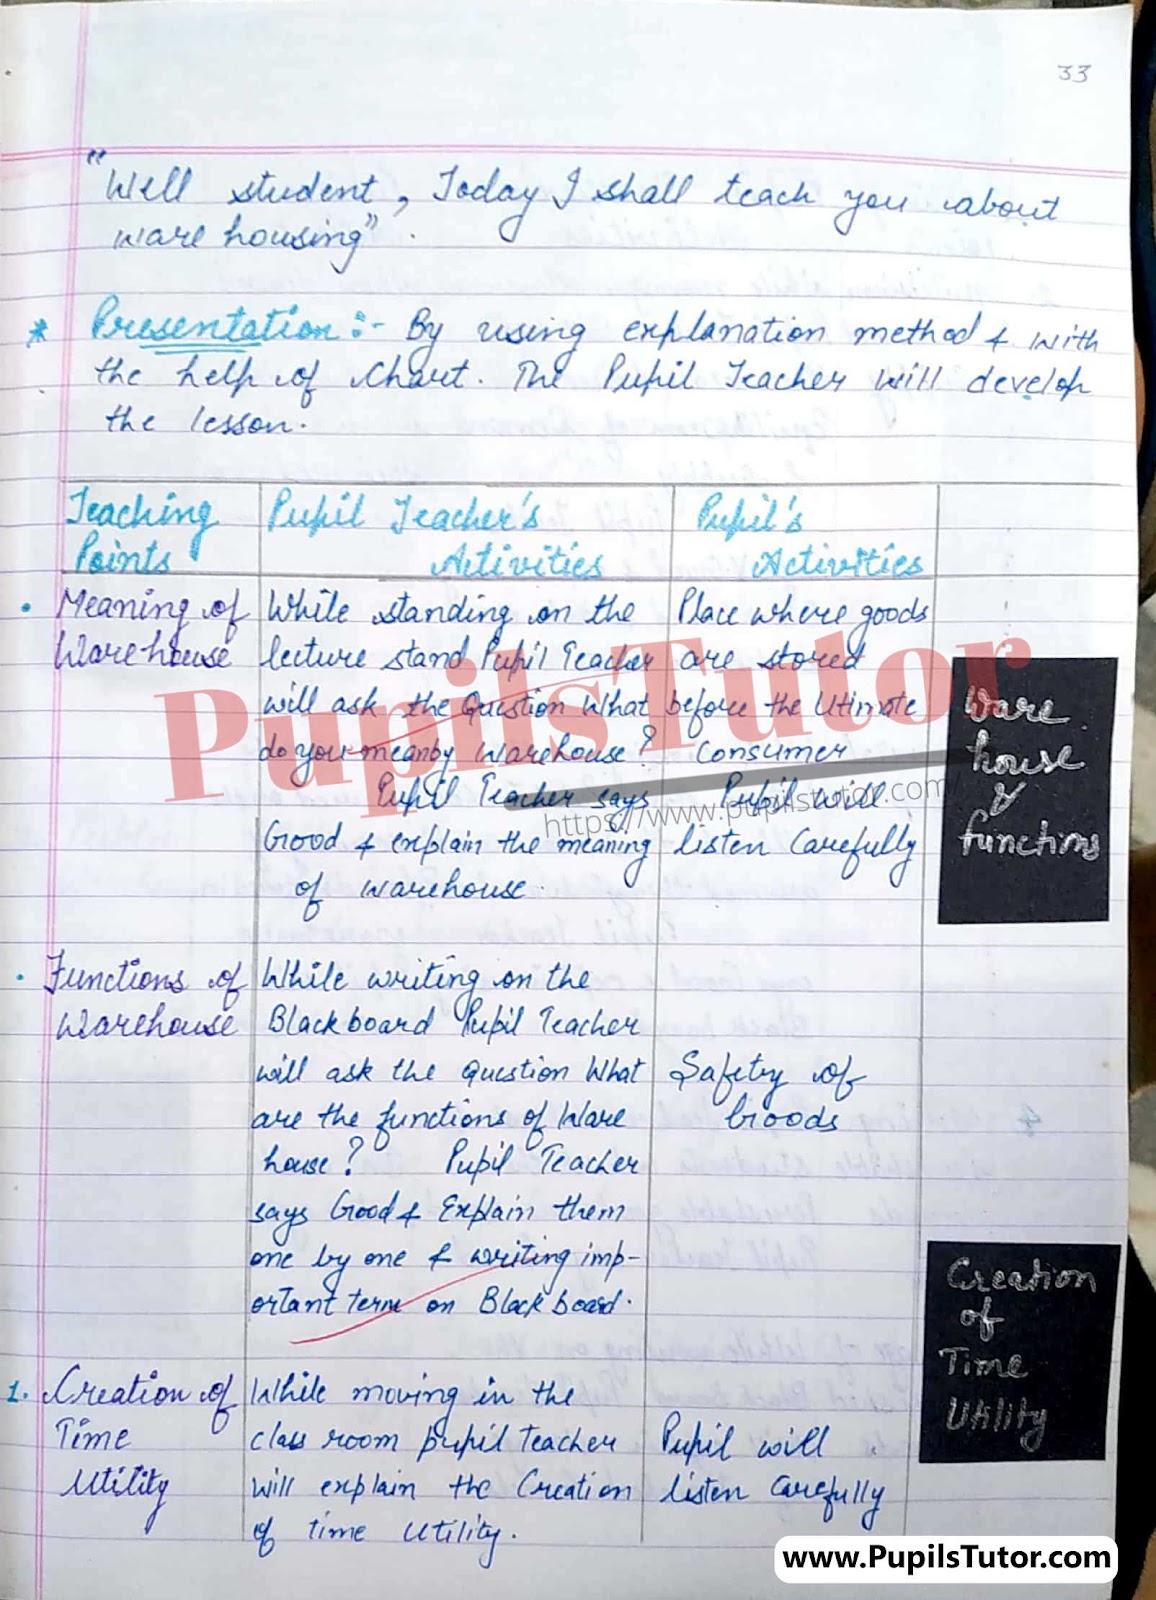 33
"Well student, Today I shall teach you about
ware housing".
* Presentation :- By using explanation method & with
the help of Chart. The Pupil Teacher will develop
the lesson.
Teaching Points
Pupil Teacher's Activities
Pupil's Activities
• Meaning of
Warehouse
While standing on the
lecture stand Pupil Teacher
will ask the Question What
do you meanby Warehouse?
Pupil Teacher says
Good & explain the meaning
of warehouse.
Place where goods
are stored
before the Utimate
Consumer
Pupil will
listen Carefully
Ware
house
&
functions
• Functions of
Warehouse
While writing on the
Blackboard Pupil Teacher
will ask the Question What
are the functions of Ware
house? Pupil Teacher
says Good & Explain them
one by one & writing imp-
ortant term on Blackboard.
Safety of
Goods
1. Creation of
Time
Utility
While moving in the
class room pupil teacher
will explain the Creation
of time Utility.
Pupil will
listen Carefully
Creation
of
Time
Utility
PupilsTutor
https://www.pupilstutor.com/
www.PupilsTutor.com